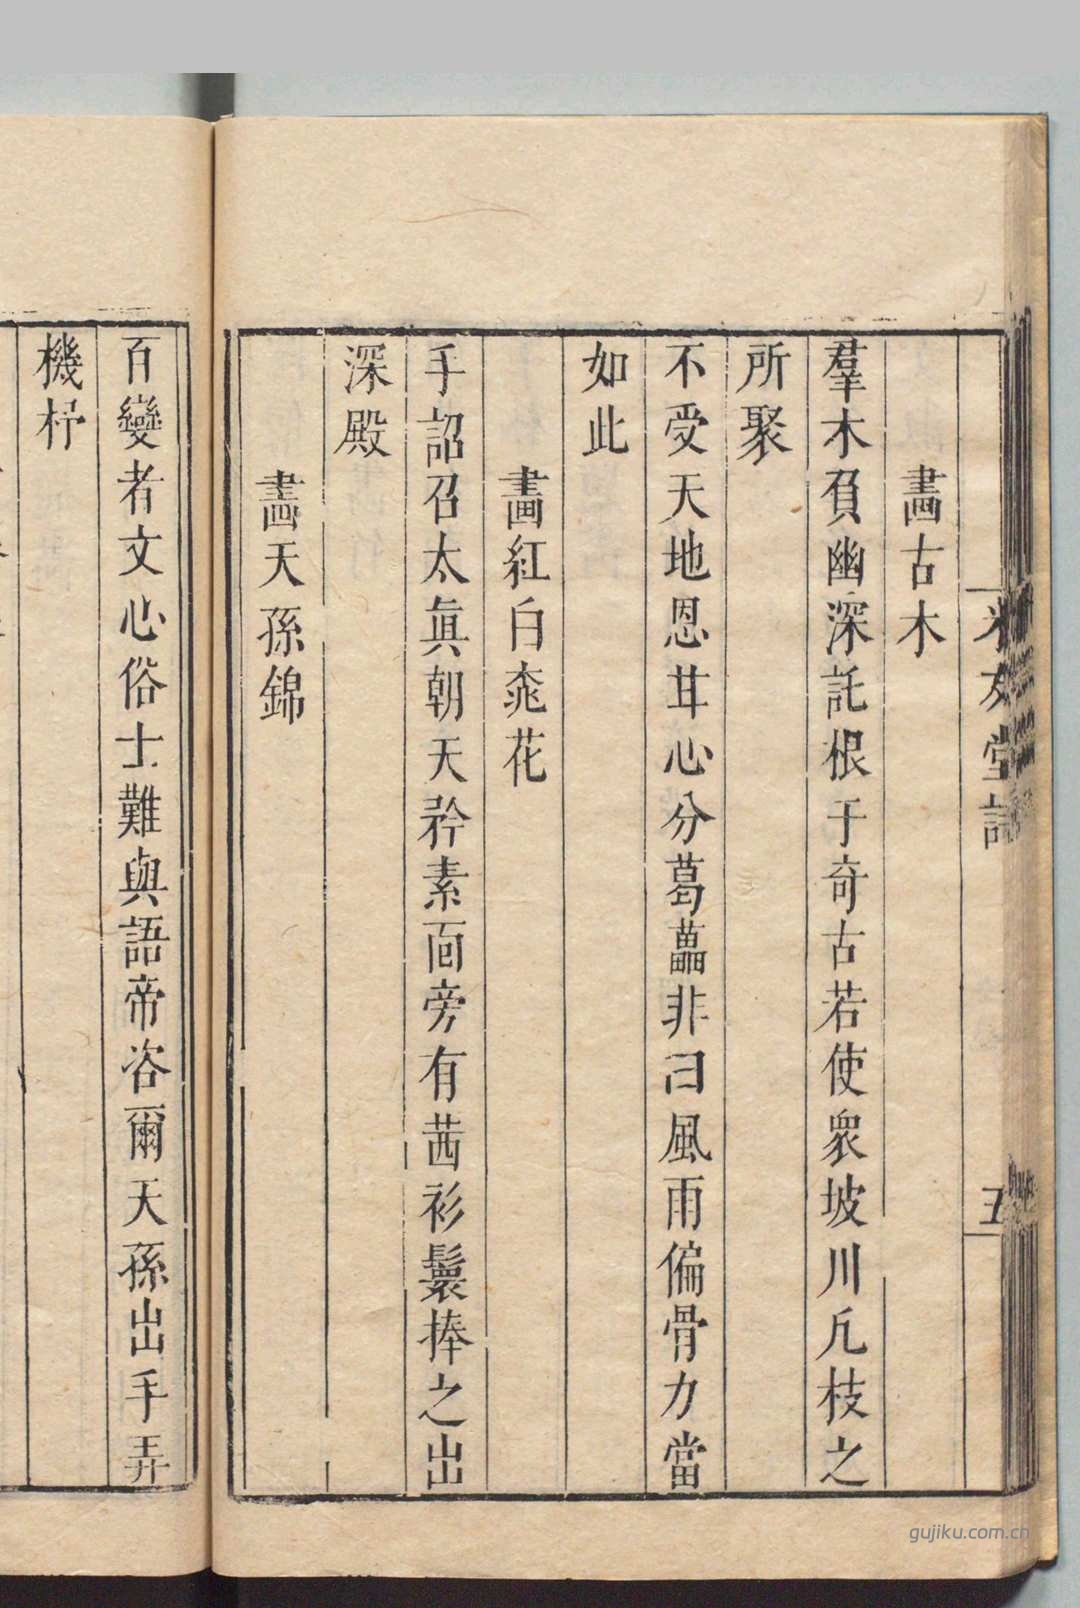 畫古木
羣木負幽深託根于奇古若使衆坡川凡枝之
所聚
不受天地恩甘心分葛藟非曰風雨偏骨力當
如此
畫紅白桃花
手詔召太眞朝天矜素面旁有茜衫鬟捧之出
深殿
畫天孫錦
百變者文心俗士難與語帝咨爾天孫出手弄
機杼
五
gujiku.com.cn